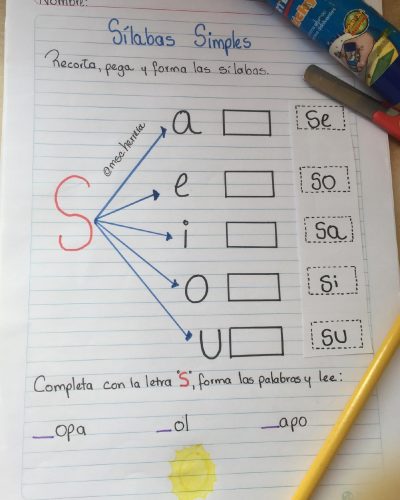 Nombre:
Sílabas Simples
Recorta, pega y forma las sílabas.
a Se
e So
S i Sa
o Si
u Su
Completa con la letra "S", forma las palabras y lee:
_opa _ol _apo